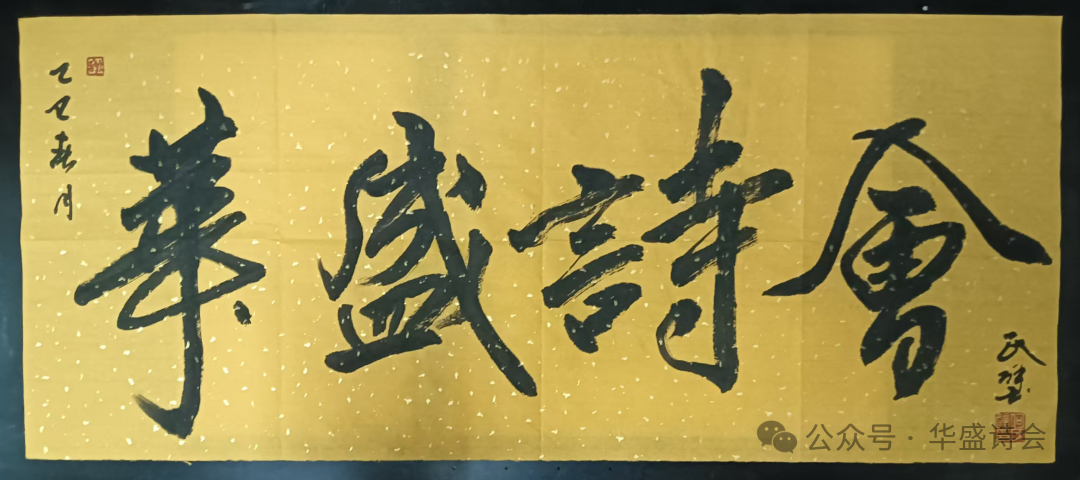 乙巳春月
華盛詩會
公众号·华盛诗会